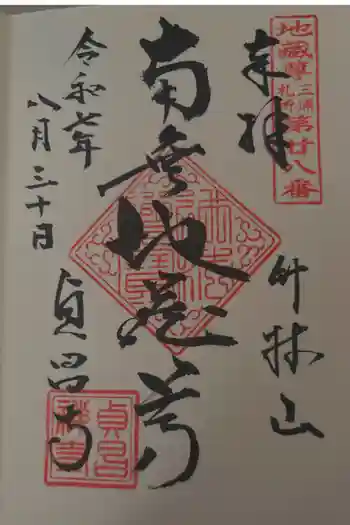 地蔵尊三浦札所第廿八番
奉拝
竹林山
南無地蔵尊
令和七年
八月三十日
貞昌寺